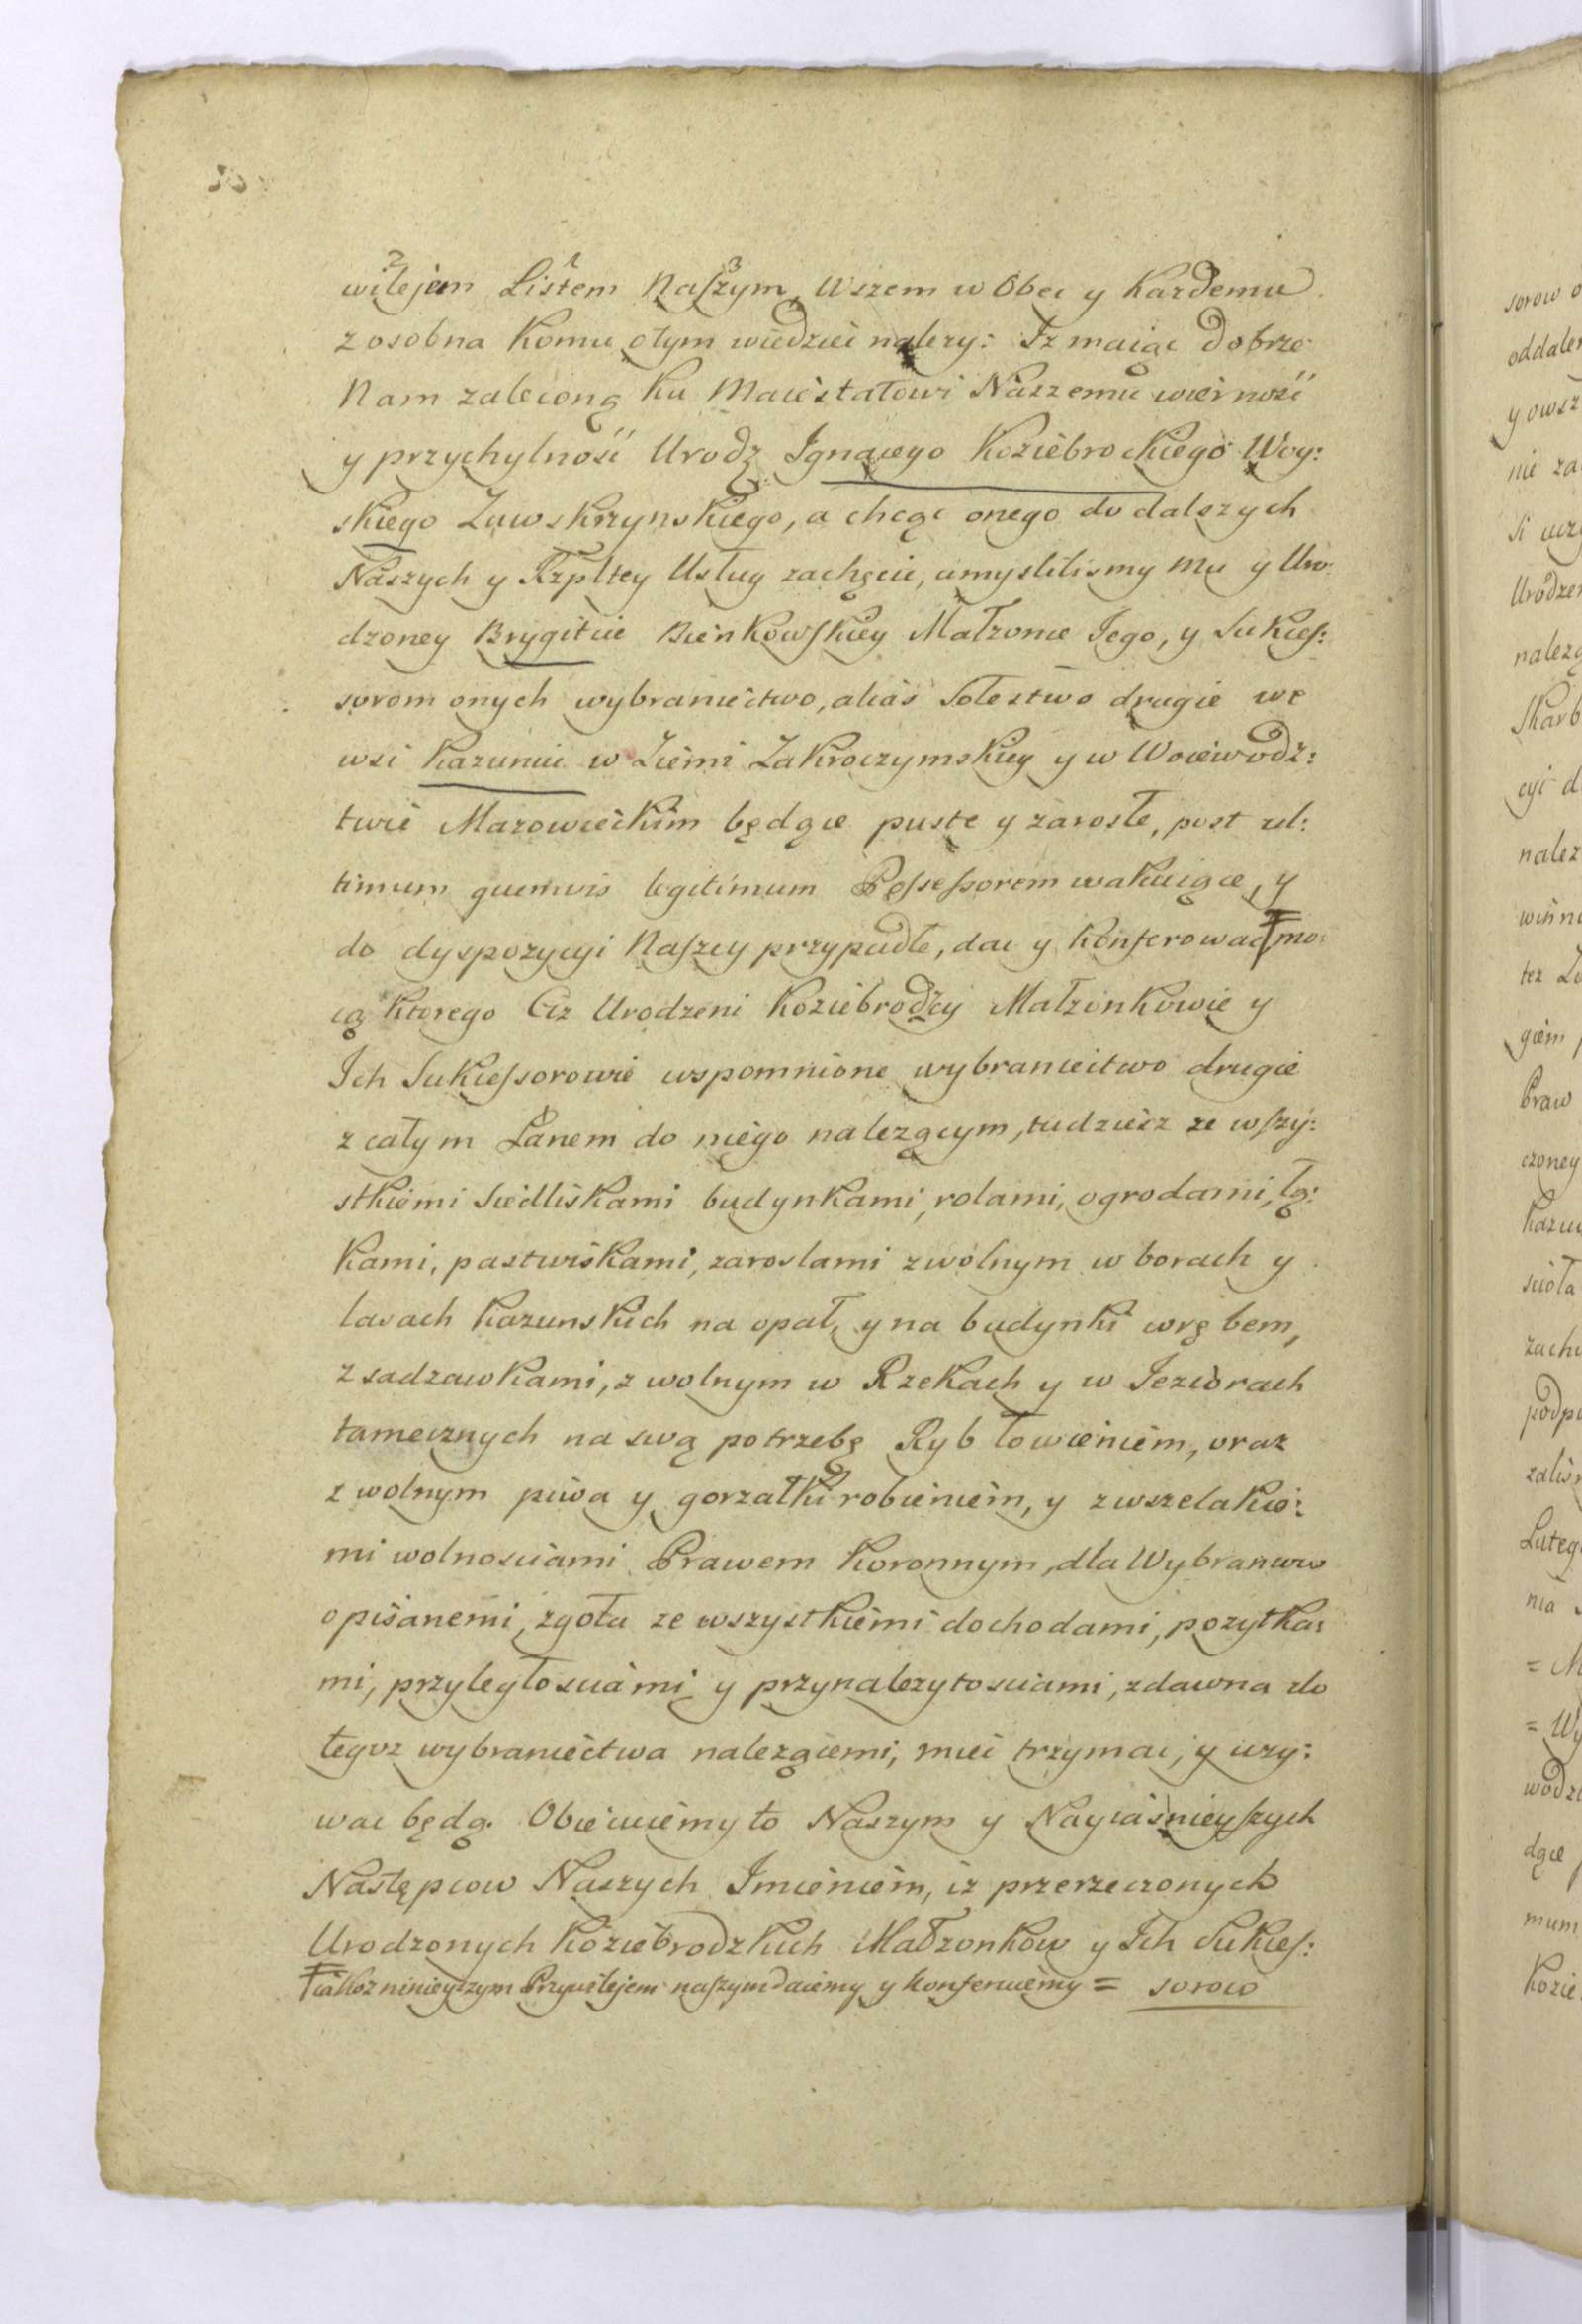 wilejem Listem Naszym, Wszem w Obec y Kazdemu
zosobna Komu otym wiedziec nalezy: Iz maiąc dobrze
Nam zaleconą Ku Maiestatowi Naszemu wiernosć
y przychylnosć Urodz Ignacego Koziebrockiego Woy:
skiego Zawskrzynskiego, a chcąc onego do dalszych
Naszych y Rzpltey Usług zachęcić, umyslilismy mu y Uro:
dzoney Brygitcie Bienkowskiey Małzonce Iego, y Sukces:
sorom onych wybraniectwo, alias Sołestwo drugie we
wsi Kazuniu w Ziemi Zakroczymskiey y w Woiewodz:
twie Mazowieckim będące puste y zarosłe, post ul:
timum quemvis legitimum Possessorem wakuiące, y
do dyspozycyi Naszey przypadłe, dac y Konferowac Ŧ mo:
cą Ktorego Ciz Urodzeni Koziebrodzcy Małzonkowie y
Ich Sukcessorowie wspomnione wybraniectwo drugie
z całym Łanem do niego nalezącym, tudziesz ze wszy:
stkiemi Siedliskami budynkami, rolami, ogrodami, łą:
kami, pastwiskami, zaroslami z wolnym w borach y
lasach Kazunskich na opał, y na budynki wrębem,
z sadzawkami, z wolnym w Rzekach y w Ieziorach
tamecznych na swą potrzebę Ryb łowieniem, oraz
z wolnym piwa y gorzałki robieniem, y z wszelakie:
mi wolnosciami Prawem Koronnym, dla Wybrancow
opisanemi, zgoła ze wszystkiemi dochodami, pozytka:
mi, przyległosciami y przynalezytosciami, zdawna do
tegoz wybraniectwa nalezącemi, miec trzymac, y uzy:
wac będą. Obiecuiemy to Naszym y Nayiasnieyszych
Następcow Naszych Imieniem, iz przerzeczonych
Urodzonych Koziebrodzkich Małzonkow y Ich Sukces:
Ŧ iakoz ninieyszym Przywilejem naszym daiemy y konferuiemy = sorow